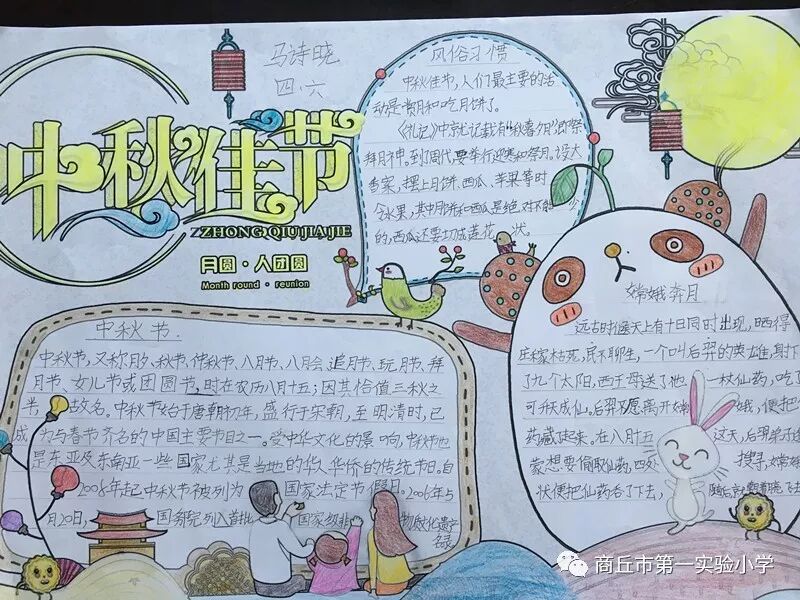 马诗晓
四·六
中秋佳节
ZHONG QIU JIA JIE
月圆·人团圆
Month round · reunion
风俗习惯
中秋佳节,人们最主要的活
动是赏月和吃月饼了。
《礼记》中记载有“秋暮夕月”
拜月神。到周代,要举行迎寒和祭月。设大
香案,摆上月饼、西瓜、苹果等时
令水果,其中月饼和西瓜是绝对不能少
的,西瓜还要切成莲花状。
中秋节
中秋节,又称月夕、秋节、仲秋节、八月节、八月会、追月节、玩月节、拜
月节、女儿节或团圆节,时在农历八月十五;因其恰值三秋之
半,故名。中秋节始于唐朝初年,盛行于宋朝,至明清时,已
成为与春节齐名的中国主要节日之一。受中华文化的影响,中秋节也
是东亚及东南亚一些国家尤其是当地的华人华侨的传统节日。自
2008年起中秋节被列为国家法定节假日。2006年5
月20日,国务院列入首批国家级非物质文化遗产
名录
嫦娥奔月
远古时候天上有十日同时出现,晒得
庄稼枯死,民不聊生,一个叫后羿的英雄,射下
了九个太阳,西王母送了他一枚仙药,吃了
可升天成仙。后羿不愿离开嫦娥,便把
药藏起来。在八月十五这天,后羿弟子逄
蒙想要偷取仙药,四处搜寻,嫦娥
状便把仙药吞了下去,
商丘市第一实验小学